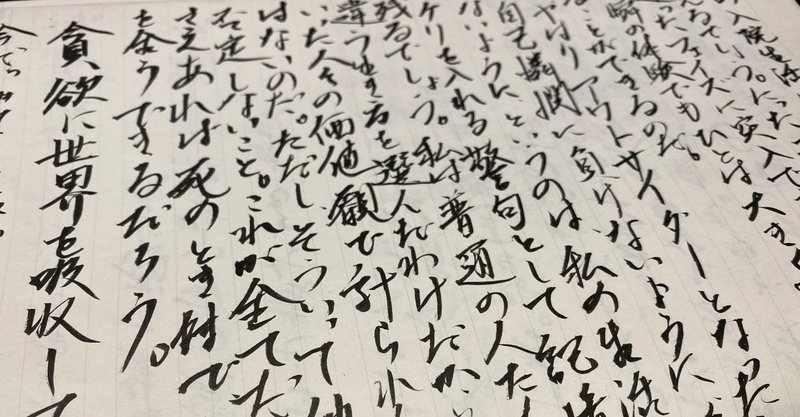 の入院生活
ったフェイズに突入で
瞬の体験でもひとは大き
ることができるのだ。
やはりアウトサイダーとなった
自己憐憫に負けないように
ないように、というのは、私の生活
ケリを入れる警句として記
残るでしょう。私は普通の人た
違う生き方を選んだわけだか
いた人々の価値観で計られ
はないのだ。ただし、そういって他
否定しないこと。これが全てだ
さえあれば死のとき
できるだろう。
貪欲に世界を吸収して